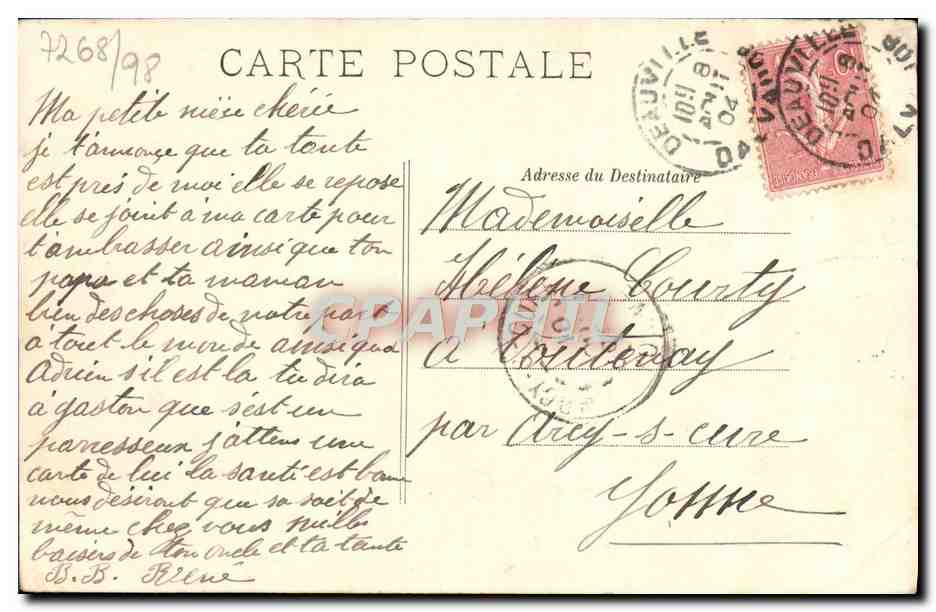 7268/98
CARTE POSTALE
Ma petite nièce chérie
je t'annonce que ta tante
est près de moi elle se repose
elle se joint à ma carte pour
t'ambrasser ainsi que ton
papa et ta maman
bien des choses de notre part
à tout le monde ainsi qua
Adrien s'il est la tu dira
à gaston que s'est un
parresseux j'attens une
carte de lui la santé est bonne
nous désiront que sa soit de
même chez vous milles
baisers de ton oncle et ta tante
B. B. René
Adresse du Destinataire
Mademoiselle
Hélène Courty
à Fontenay
par Arcy-s-cure
Yonne
DEAUVILLE
8
04
DEAUVILLE
CPAPHIL